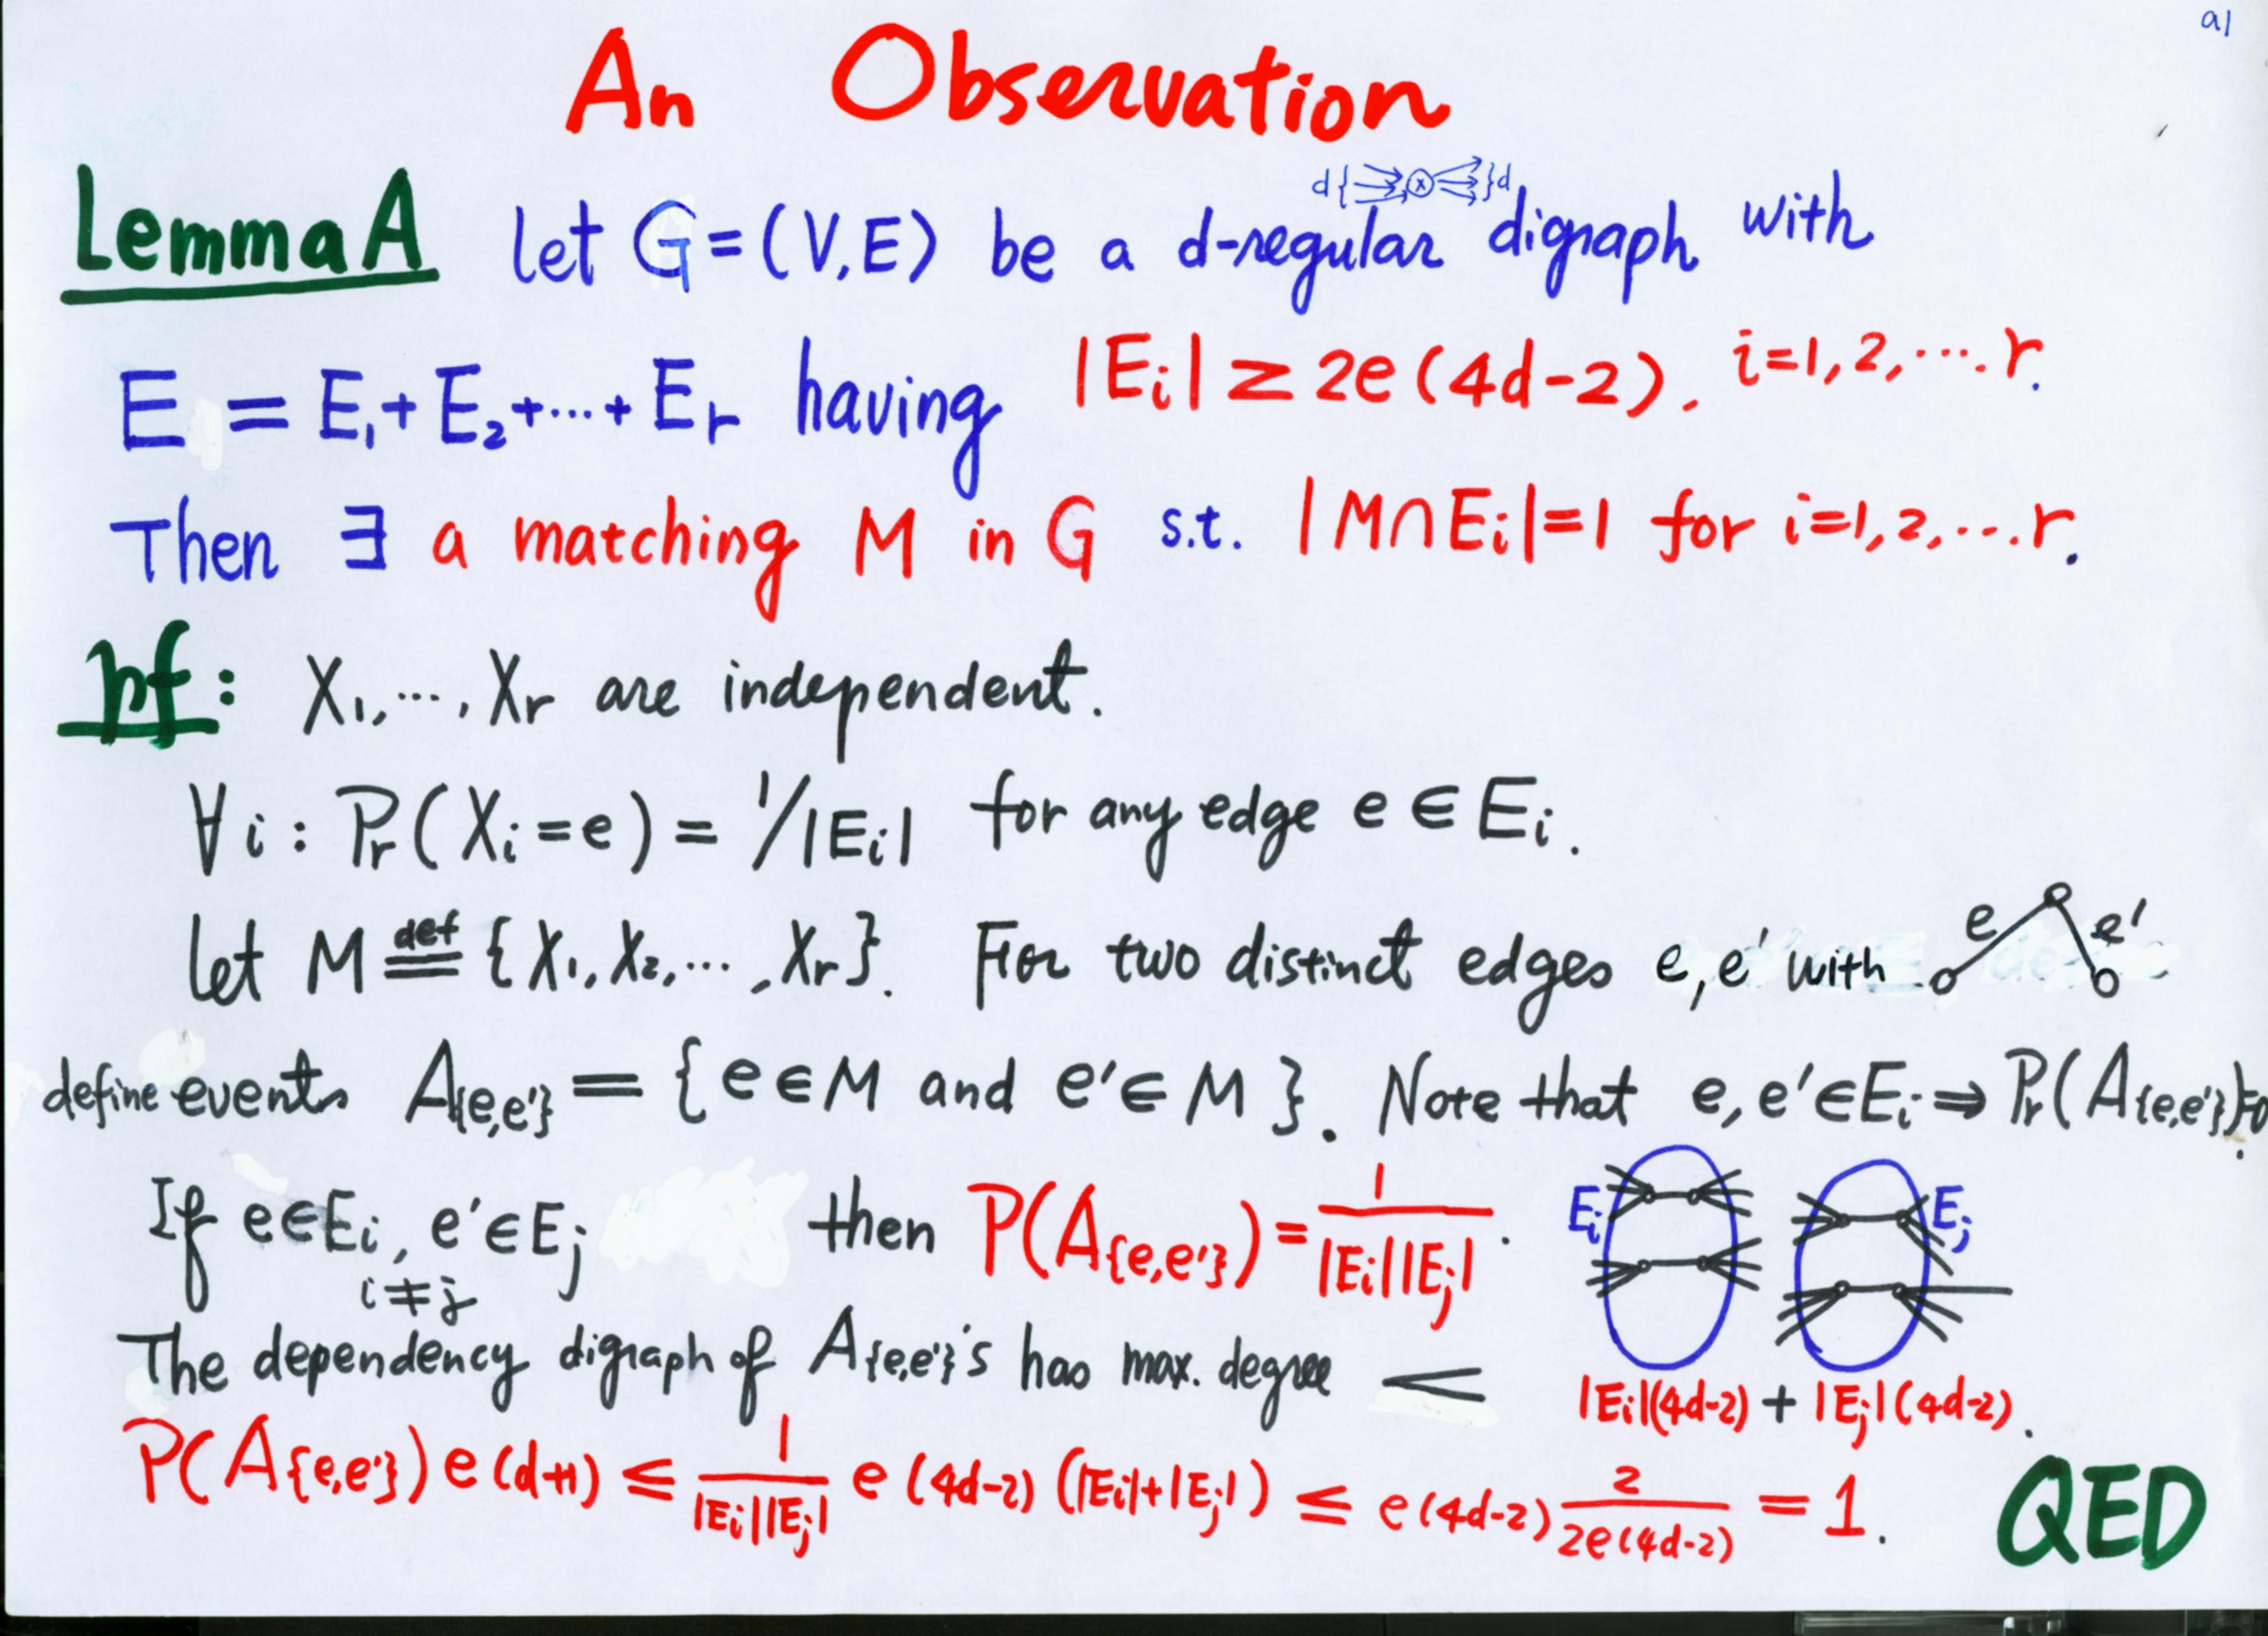 a1
An Observation
d{ x }d
Lemma A Let G=(V,E) be a d-regular digraph with
E = E₁+E₂+···+Eᵣ having |Eᵢ| ≥ 2e(4d-2), i=1,2,···.r.
Then ∃ a matching M in G s.t. |M∩Eᵢ|=1 for i=1,2,...r.
pf: X₁,···,Xᵣ are independent.
∀i: Pr(Xᵢ=e) = 1/|Eᵢ| for any edge e ∈ Eᵢ.
Let M ≝ {X₁,X₂,···,Xᵣ}. For two distinct edges e,e' with e e'
define events A{e,e'} = {e∈M and e'∈M}. Note that e,e'∈Eᵢ ⇒ Pr(A{e,e'})=0.
If e∈Eᵢ, e'∈Eⱼ then P(A{e,e'}) = 1/|Eᵢ||Eⱼ|. Eᵢ Eⱼ
i≠j
The dependency digraph of A{e,e'}'s has max. degree ≤ |Eᵢ|(4d-2) + |Eⱼ|(4d-2).
P(A{e,e'}) e (d+1) ≤ 1/|Eᵢ||Eⱼ| e (4d-2) (|Eᵢ|+|Eⱼ|) ≤ e(4d-2) 2/2e(4d-2) = 1.
QED